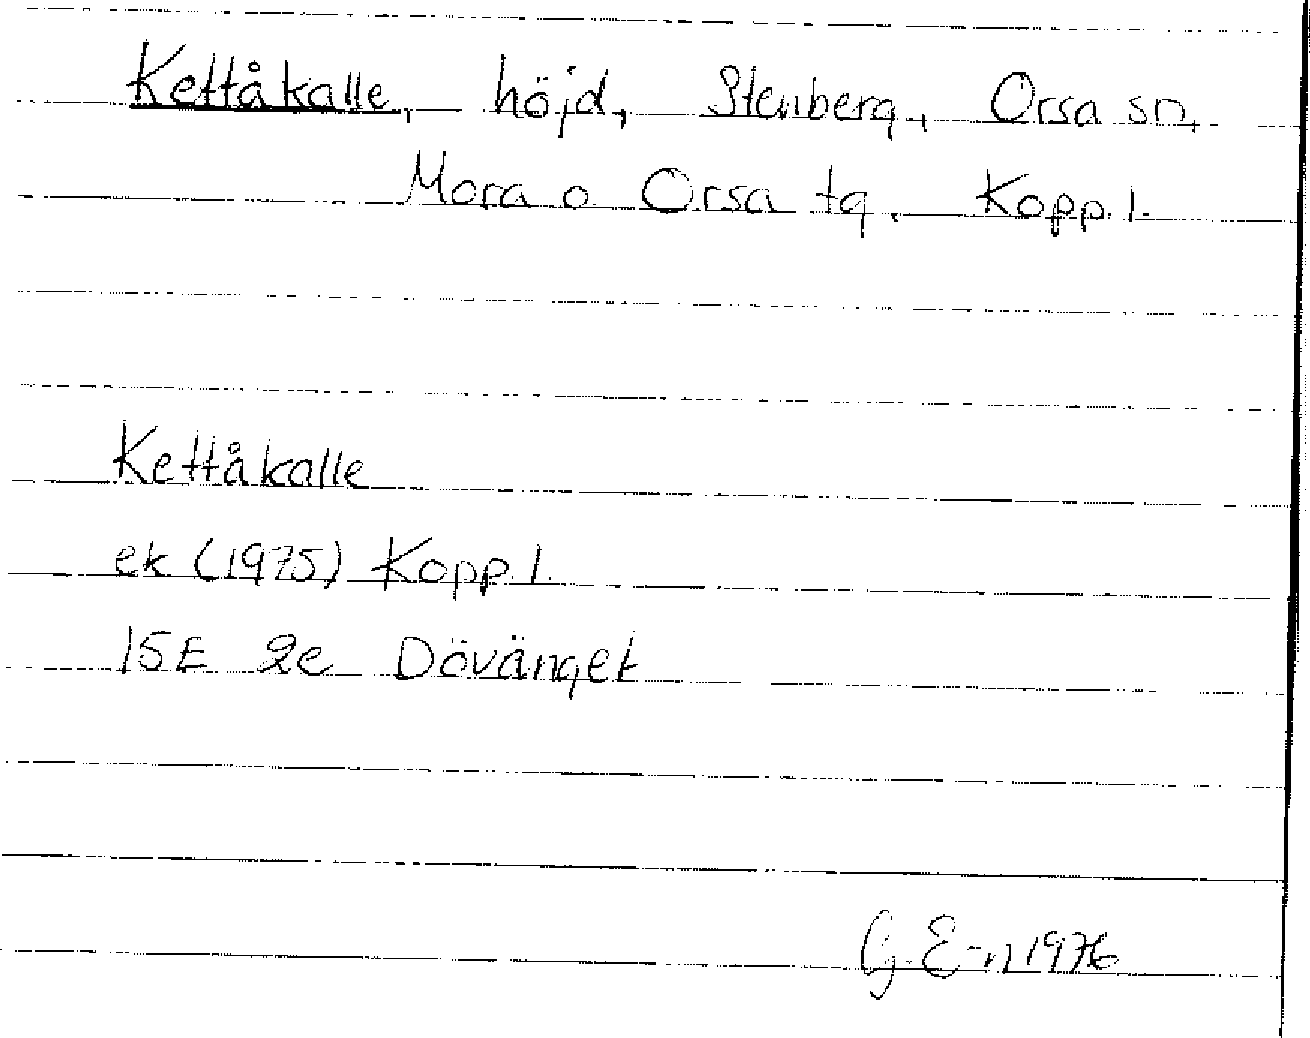 Kettåkalle, höjd, Stenberg, Orsa sn,
Mora o Orsa tg. Kopp. l.
Kettåkalle
ek (1975) Kopp. l.
15E 2e Dövänget
G. E-n 1976